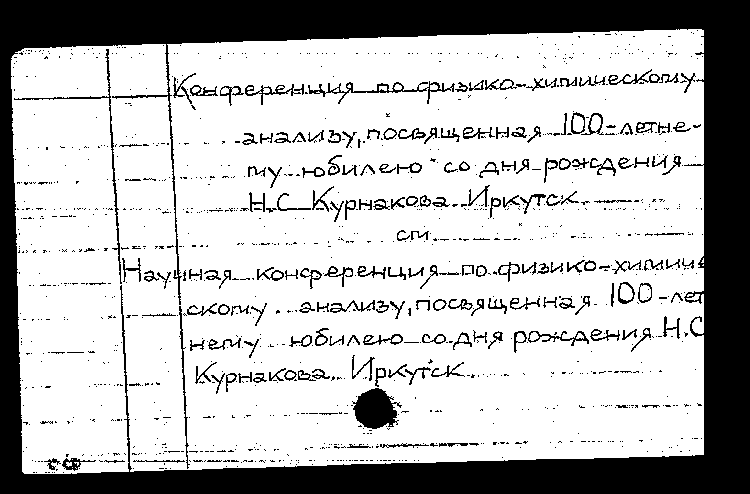 Конференция по физико-химическому
анализу, посвященная 100-летне-
му юбилею со дня рождения
Н.С Курнакова. Иркутск
см.
Научная конференция по физико-химиче
скому анализу, посвященная 100-лет
нему юбилею со дня рождения Н.С
Курнакова. Иркутск.